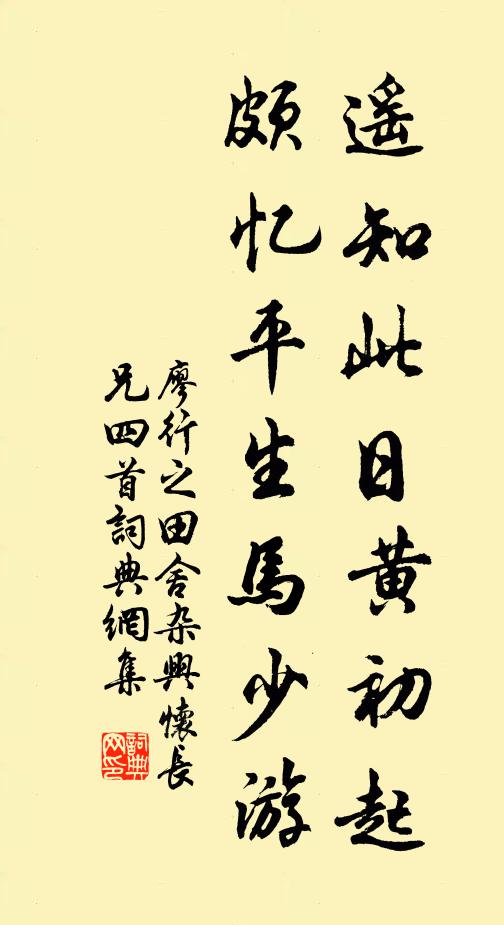 遥知此日黄初起
颇忆平生馬少游
廖行之田舍杂興懷長
兄四首詞典網集
詞典
网印